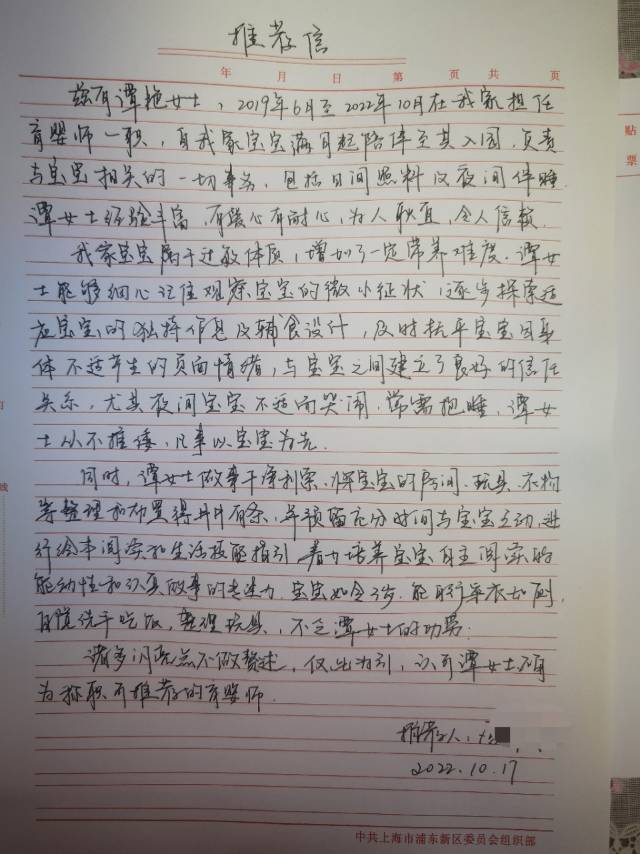 推荐信
年 月 日 第 页 共 页
兹有谭艳女士，2019年6月至2022年10月在我家担任
育婴师一职，自我家宝宝满月起陪伴至其入园，负责
与宝宝相关的一切事务，包括日间照料及夜间伴睡.
谭女士经验丰富，有爱心有耐心，为人耿直，令人信赖.
我家宝宝属于过敏体质，增加了一定带养难度. 谭女
士能够细心记住观察宝宝的微小征状，逐步探索适
应宝宝的独特作息及辅食设计，及时抚平宝宝因身
体不适产生的负面情绪，与宝宝之间建立了良好的信任
关系，尤其夜间宝宝不适而哭闹，常需抱睡，谭女
士从不推诿，凡事以宝宝为先.
同时，谭女士做事干净利索，保宝宝的房间、玩具、衣物
等整理和布置得井井有条，并预留充分时间与宝宝互动，进
行绘本阅读和生活技能指引，着力培养宝宝自主阅读的
能动性和认真做事的专注力. 宝宝如今3岁，能取穿衣如厕，
自觉洗手吃饭，整理玩具，不乏谭女士的功劳.
诸多闪亮点不做赘述，仅此为引，认可谭女士
为称职可推荐的育婴师.
推荐人：
2022.10.17
中共上海市浦东新区委员会组织部
贴
票
线